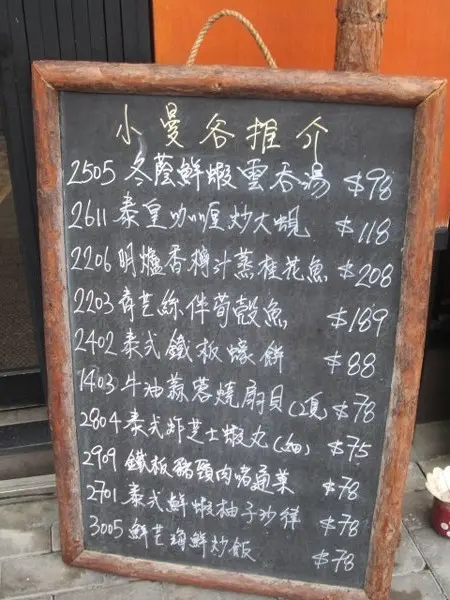 小曼谷推介
2505 冬蔭鮮蝦雲吞湯 $98
2611 泰皇咖喱炒大蜆 $118
2206 明爐香檸汁蒸桂花魚 $208
2203 青芒絲伴荀殼魚 $189
2402 泰式鐵板蠔餅 $88
1403 牛油蒜蓉燒扇貝(2隻) $78
2804 泰式炸芝士蝦丸(如) $75
2909 鐵板豬頸肉啫通菜 $78
2701 泰式鮮蝦柚子沙律 $78
3005 鮮芒海鮮炒飯 $78